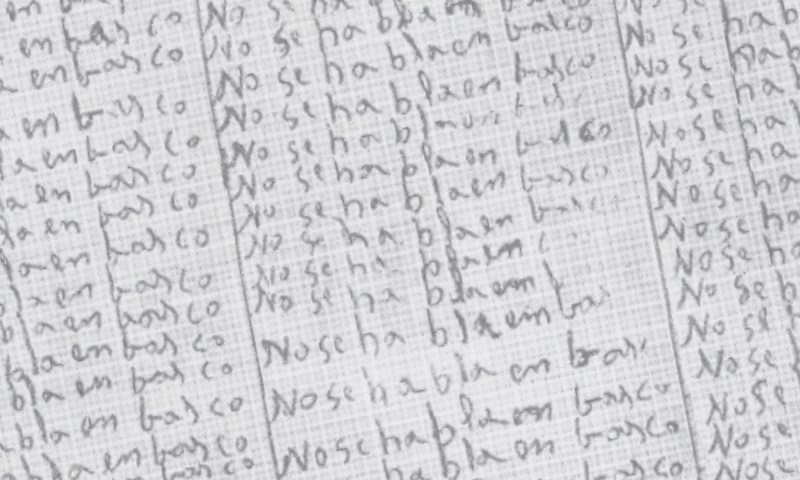 en basco
en basco
a en basco
a en basco
la en basco
la en basco
la en basco
la en basco
la en basco
bla en basco
bla en basco
bla en basco
bla en basco
bla en basco
No se habla en
No se habla en basco
No se habla en basco
No se habla en
No se habla en basco
No se habla en basco
No se habla en
No se habla en
No se habla en
No se habla en
No se habla en basco
No se habla en basco
No se habla en basco
habla en basco
No se hab
No se hab
No se hab
No se ha
No se ha
No se ha
No se ha
No se ha
No se h
No se
No se
No se
No se
No se